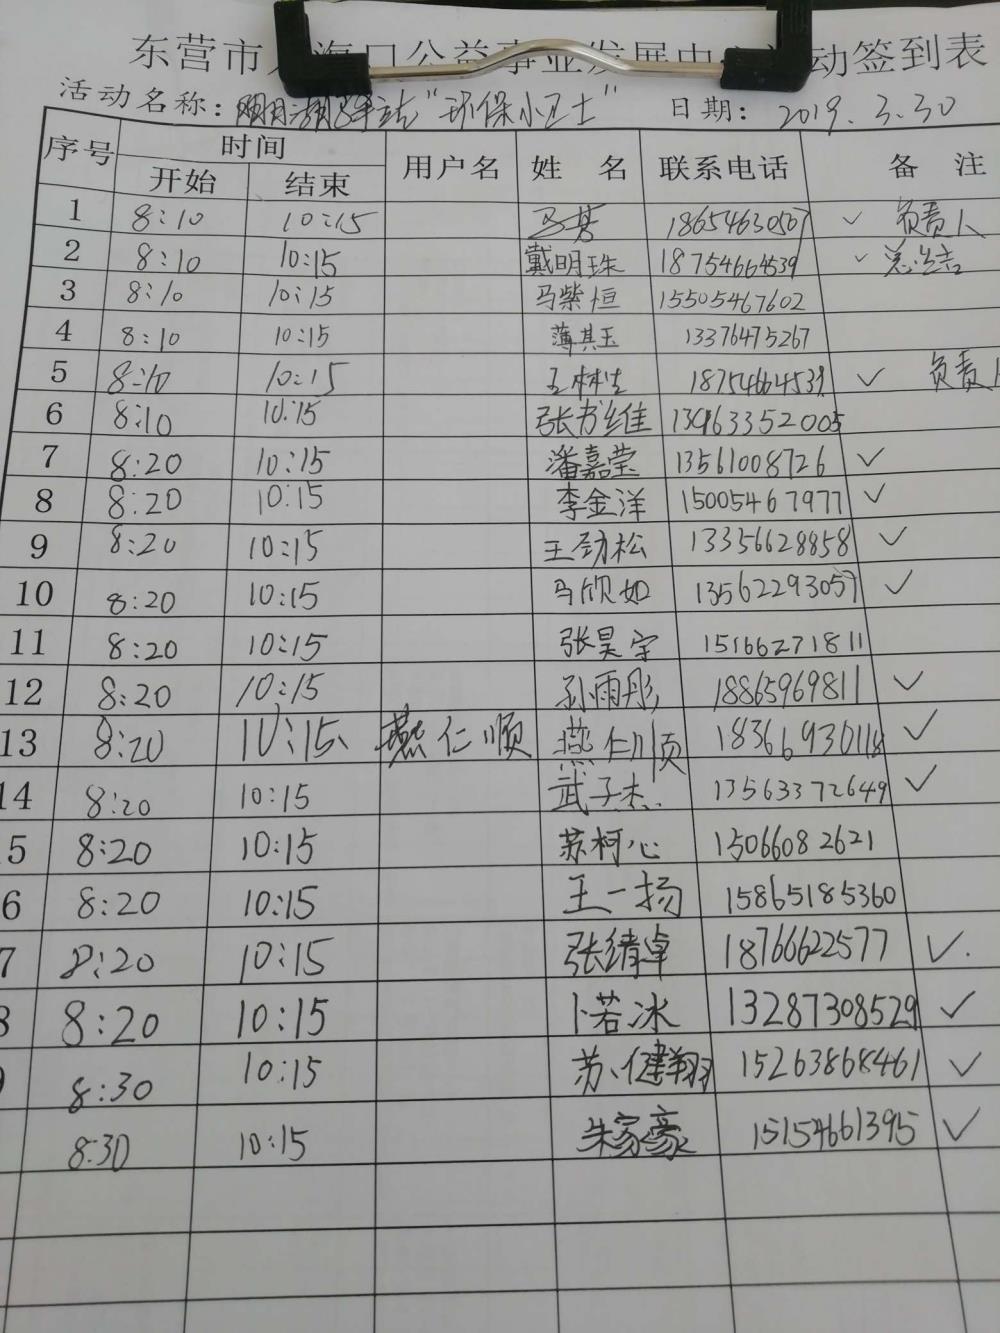 东营市 海口公益事业发展中 动签到表
活动名称：明月湖驿站“环保小卫士” 日期：2019.3.30
序号 时间 用户名 姓名 联系电话 备注
开始 结束
1 8:10 10:15 马 18654630507 ✓ 负责人
2 8:10 10:15 戴明珠 18754664539 ✓ 总结
3 8:10 10:15 马紫恒 15505467602
4 8:10 10:15 薄其玉 13376475267
5 8:10 10:15 王林生 18754664539 ✓ 负责人
6 8:10 10:15 张书维 13963352005
7 8:20 10:15 潘嘉莹 13561008726 ✓
8 8:20 10:15 李金洋 15005467977 ✓
9 8:20 10:15 王劲松 13356628858 ✓
10 8:20 10:15 马欣如 13562293057 ✓
11 8:20 10:15 张昊宇 15166271811
12 8:20 10:15 孙雨彤 18865969811 ✓
13 8:20 10:15 燕仁顺 燕仁顺 18366930118 ✓
14 8:20 10:15 武子杰 13563372649 ✓
5 8:20 10:15 苏柯心 15066082621
6 8:20 10:15 王一扬 15865185360
7 8:20 10:15 张绪卓 18766622577 ✓
8 8:20 10:15 卜若冰 13287308529 ✓
8:30 10:15 苏健翔 15263868461 ✓
8:30 10:15 朱家豪 15154661395 ✓